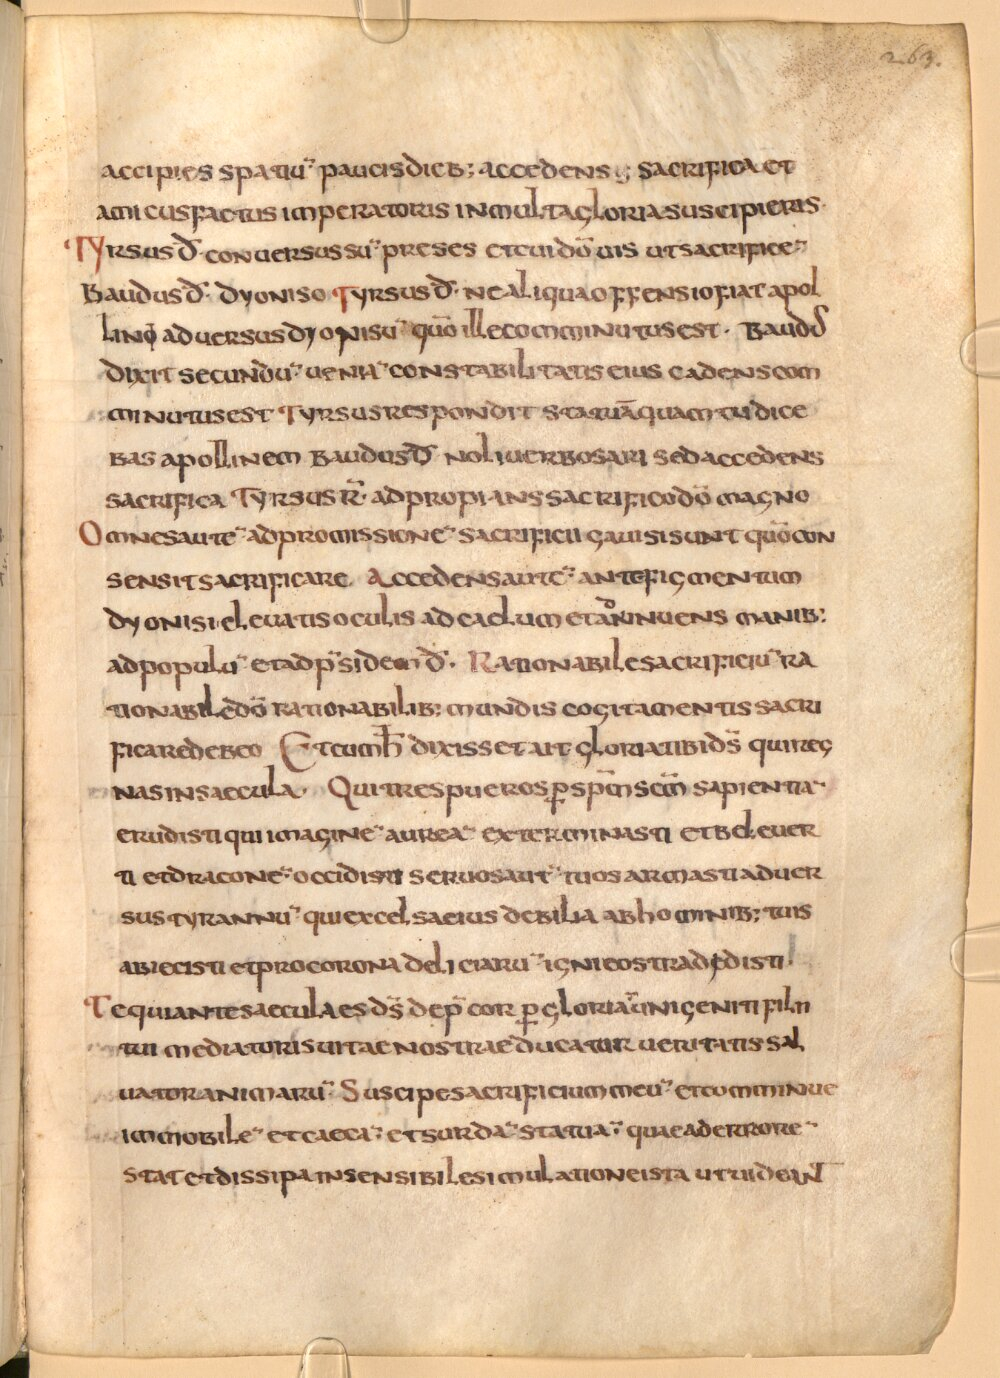 263.
accipies spatiū paucis dieb; accedens sacrifica et
amicus factus imperatoris in multa gloria suscipieris.
Tyrsus d̄. conuersus sū preses et cui dō uis ut sacrificē
Baudus d̄. dyoniso Tyrsus d̄. ne aliqua offensio fiat apol
lini aduersus dyonisū quō ille comminutus est. Baudꝰ
dixit secundū ueniā constabilitatis eius cadens com
minutus est Tyrsus respondit statuā quam tu dice
bas apollinem Baudus d̄ noli uerbosari sed accedens
sacrifica Tyrsus r̄. adpropians sacrifico dō magno
Omnes autē ad promissionē sacrificii gauisi sunt quō con
sensit sacrificare. Accedens autē ante figmentum
dyonisi eleuatis oculis ad caelum et annuens manib;
ad populū et ad p̄sidem d̄. Rationabile sacrificiū ra
tionabile dō rationabilib; mundis cogitamentis sacri
ficare debeo Et cum h̄ dixisset ait gloria tibi d̄s qui reg
nas in saecula. Qui tres pueros ꝑ sp̄m sc̄m sapientia
erudisti qui imaginē aureā exterminasti et bel euer
ti et draconē occidisti seruos aut̄ tuos armasti aduer
sus tyrannū qui excelsa eius debilia ab hominib; tuis
abiecisti et pro corona deliciarū igni eos tradedisti.
Te qui ante saecula es d̄s de p̄cor ꝑ gloriā unigeniti filii
tui mediatoris uitae nostrae ducator ueritatis sal
uator animarū Suscipe sacrificium meū et comminue
immobilē et caecā et surdā statuā quae ad errorē
stat et dissipa insensibile simulatione ista ut uideant